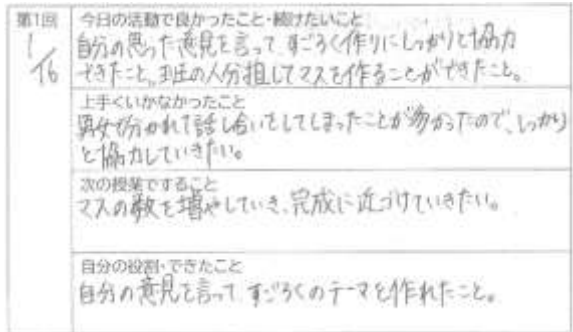 第1回
1/16
今日の活動で良かったこと・続けたいこと
自分の思った意見を言って、すごろく作りにしっかりと協力
できたこと。班の人分担してマスを作ることができたこと。
上手くいかなかったこと
男女で分かれて話し合いをしてしまったことが多かったので、しっかり
と協力していきたい。
次の授業ですること
マスの数を増やしていき、完成に近づけていきたい。
自分の役割・できたこと
自分の意見を言って、すごろくのテーマを作れたこと。